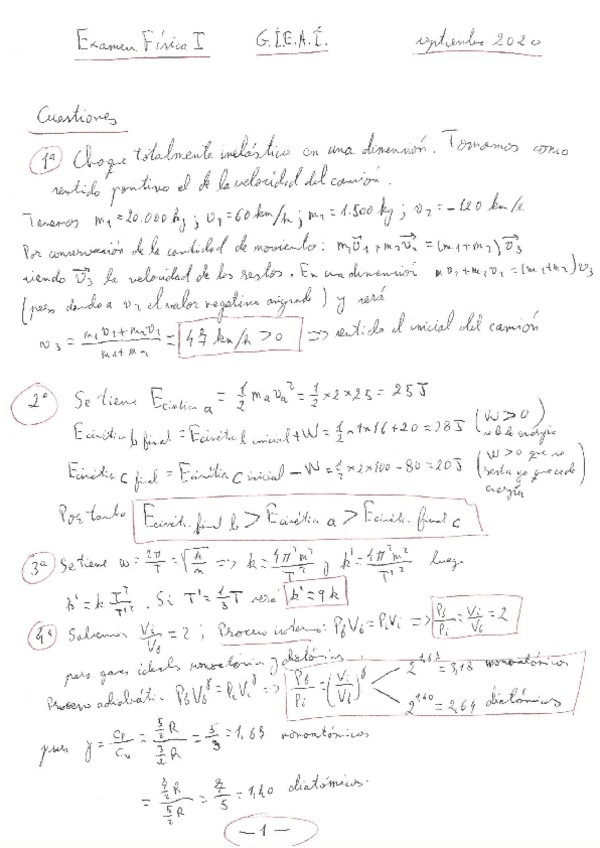 Examen Física I G.I.E.A.I. septiembre 2020
Cuestiones
1ª Choque totalmente inelástico en una dimensión. Tomamos como
sentido positivo el de la velocidad del camión.
Tenemos m₁=20.000 kg; v₁=60 km/h; m₂=1.500 kg; v₂=-120 km/h
Por conservación de la cantidad de movimiento: m₁v⃗₁+m₂v⃗₂=(m₁+m₂)v⃗₃
siendo v⃗₃ la velocidad de los restos. En una dimensión m₁v₁+m₂v₂=(m₁+m₂)v₃
(pero dando a v₂ el valor negativo asignado) y será
v₃ = (m₁v₁+m₂v₂)/(m₁+m₂) = 47 km/h > 0 => sentido el inicial del camión
2ª Se tiene Ecinética a = 1/2 mₐvₐ² = 1/2 × 2 × 25 = 25 J
Ecinética b final = Ecinética b inicial + W = 1/2 × 1 × 16 + 20 = 28 J (W>0 energía)
Ecinética c final = Ecinética c inicial - W = 1/2 × 2 × 100 - 80 = 20 J (W>0 que se resta ya que cede energía)
Por tanto Ecinét. final b > Ecinética a > Ecinét. final c
3ª Se tiene ω = 2π/T = √(k/m) => k = 4π²m/T² y k' = 4π²m/T'² luego
k' = k T²/T'². Si T' = 1/3 T será k' = 9k
4ª Sabemos Vi/Vf = 2; Proceso isotermo: PfVf = PiVi => Pf/Pi = Vi/Vf = 2
para gases ideales monoatómicos y diatómicos.
Proceso adiabático PfVf^γ = PiVi^γ => Pf/Pi = (Vi/Vf)^γ 2^1,63 = 3,18 monoatómicos
2^1,40 = 2,64 diatómicos
pues γ = Cp/Cv = (5/2 R)/(3/2 R) = 5/3 = 1,63 monoatómicos
= (7/2 R)/(5/2 R) = 7/5 = 1,40 diatómicos.
-1-